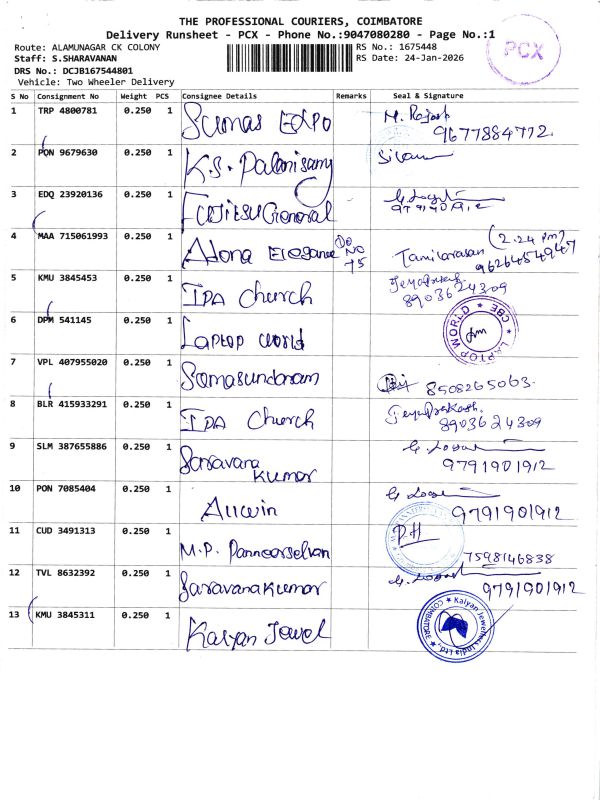 THE PROFESSIONAL COURIERS, COIMBATORE
Delivery Runsheet - PCX - Phone No.:9047080280 - Page No.:1
Route: ALAMUNAGAR CK COLONY
RS No.: 1675448
Staff: S.SHARAVANAN
RS Date: 24-Jan-2026
DRS No.: DCJB167544801
Vehicle: Two Wheeler Delivery
PCX
S No Consignment No Weight PCS Consignee Details Remarks Seal & Signature
1 TRP 4800781 0.250 1 Sumas Expo M. Rajesh
9677884772.
2 PON 9679630 0.250 1 K.S. Palanisamy
3 EDQ 23920136 0.250 1 Fujitsu General
9791901912
4 MAA 715061993 0.250 1 Adona Elegance NO 75 Tamilarasan (2.24 Pm)
9626454947
5 KMU 3845453 0.250 1 IPA Church Jeyaprakash
8903624309
6 DPM 541145 0.250 1 Laptop World
LAPTOP WORLD * CBE *
7 VPL 407955020 0.250 1 Somasundaram 8508265063.
8 BLR 415933291 0.250 1 IPA Church Jeyaprakash.
8903624309
9 SLM 387655886 0.250 1 Saravana Kumar
9791901912
10 PON 7085404 0.250 1 Aliwin
9791901912
11 CUD 3491313 0.250 1 M.P. Panneerselvan P.H
7598146838
12 TVL 8632392 0.250 1 Saravana Kumar
9791901912
13 KMU 3845311 0.250 1 Kalyan Jewel
Kalyan Jewellers India Ltd, * COIMBATORE *